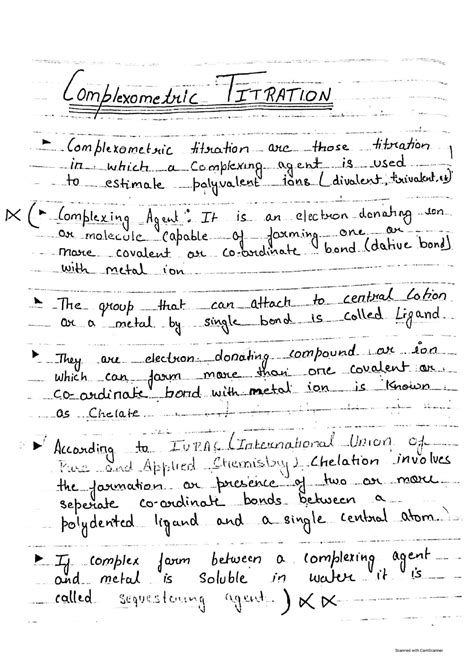 Complexometric TITRATION
► Complexometric titration are those titration
in which a complexing agent is used
to estimate polyvalent ions (divalent, trivalent, etc)
( ► Complexing Agent: It is an electron donating ion
or molecule capable of forming one or
more covalent or co-ordinate bond (dative bond)
with metal ion
► The group that can attach to central Cation
or a metal by single bond is called Ligand.
► They are electron donating compound or ion
which can form more than one covalent or
co-ordinate bond with metal ion is Known
as Chelate
► According to IUPAC (International Union of
Pure and Applied Chemistry) Chelation involves
the formation or presence of two or more
seperate co-ordinate bonds between a
polydented ligand and a single central atom.
► If complex form between a complexing agent
and metal is Soluble in water it is
called sequestering agent. )
Scanned with CamScanner